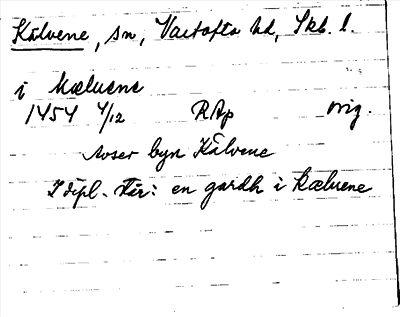 Kälvene, sn, Vartofta hd, Skb. l.
i Kæluene
1454 4/12 RAp orig.
Avser byn Kälvene
I dipl. står: en gardh i kæluene